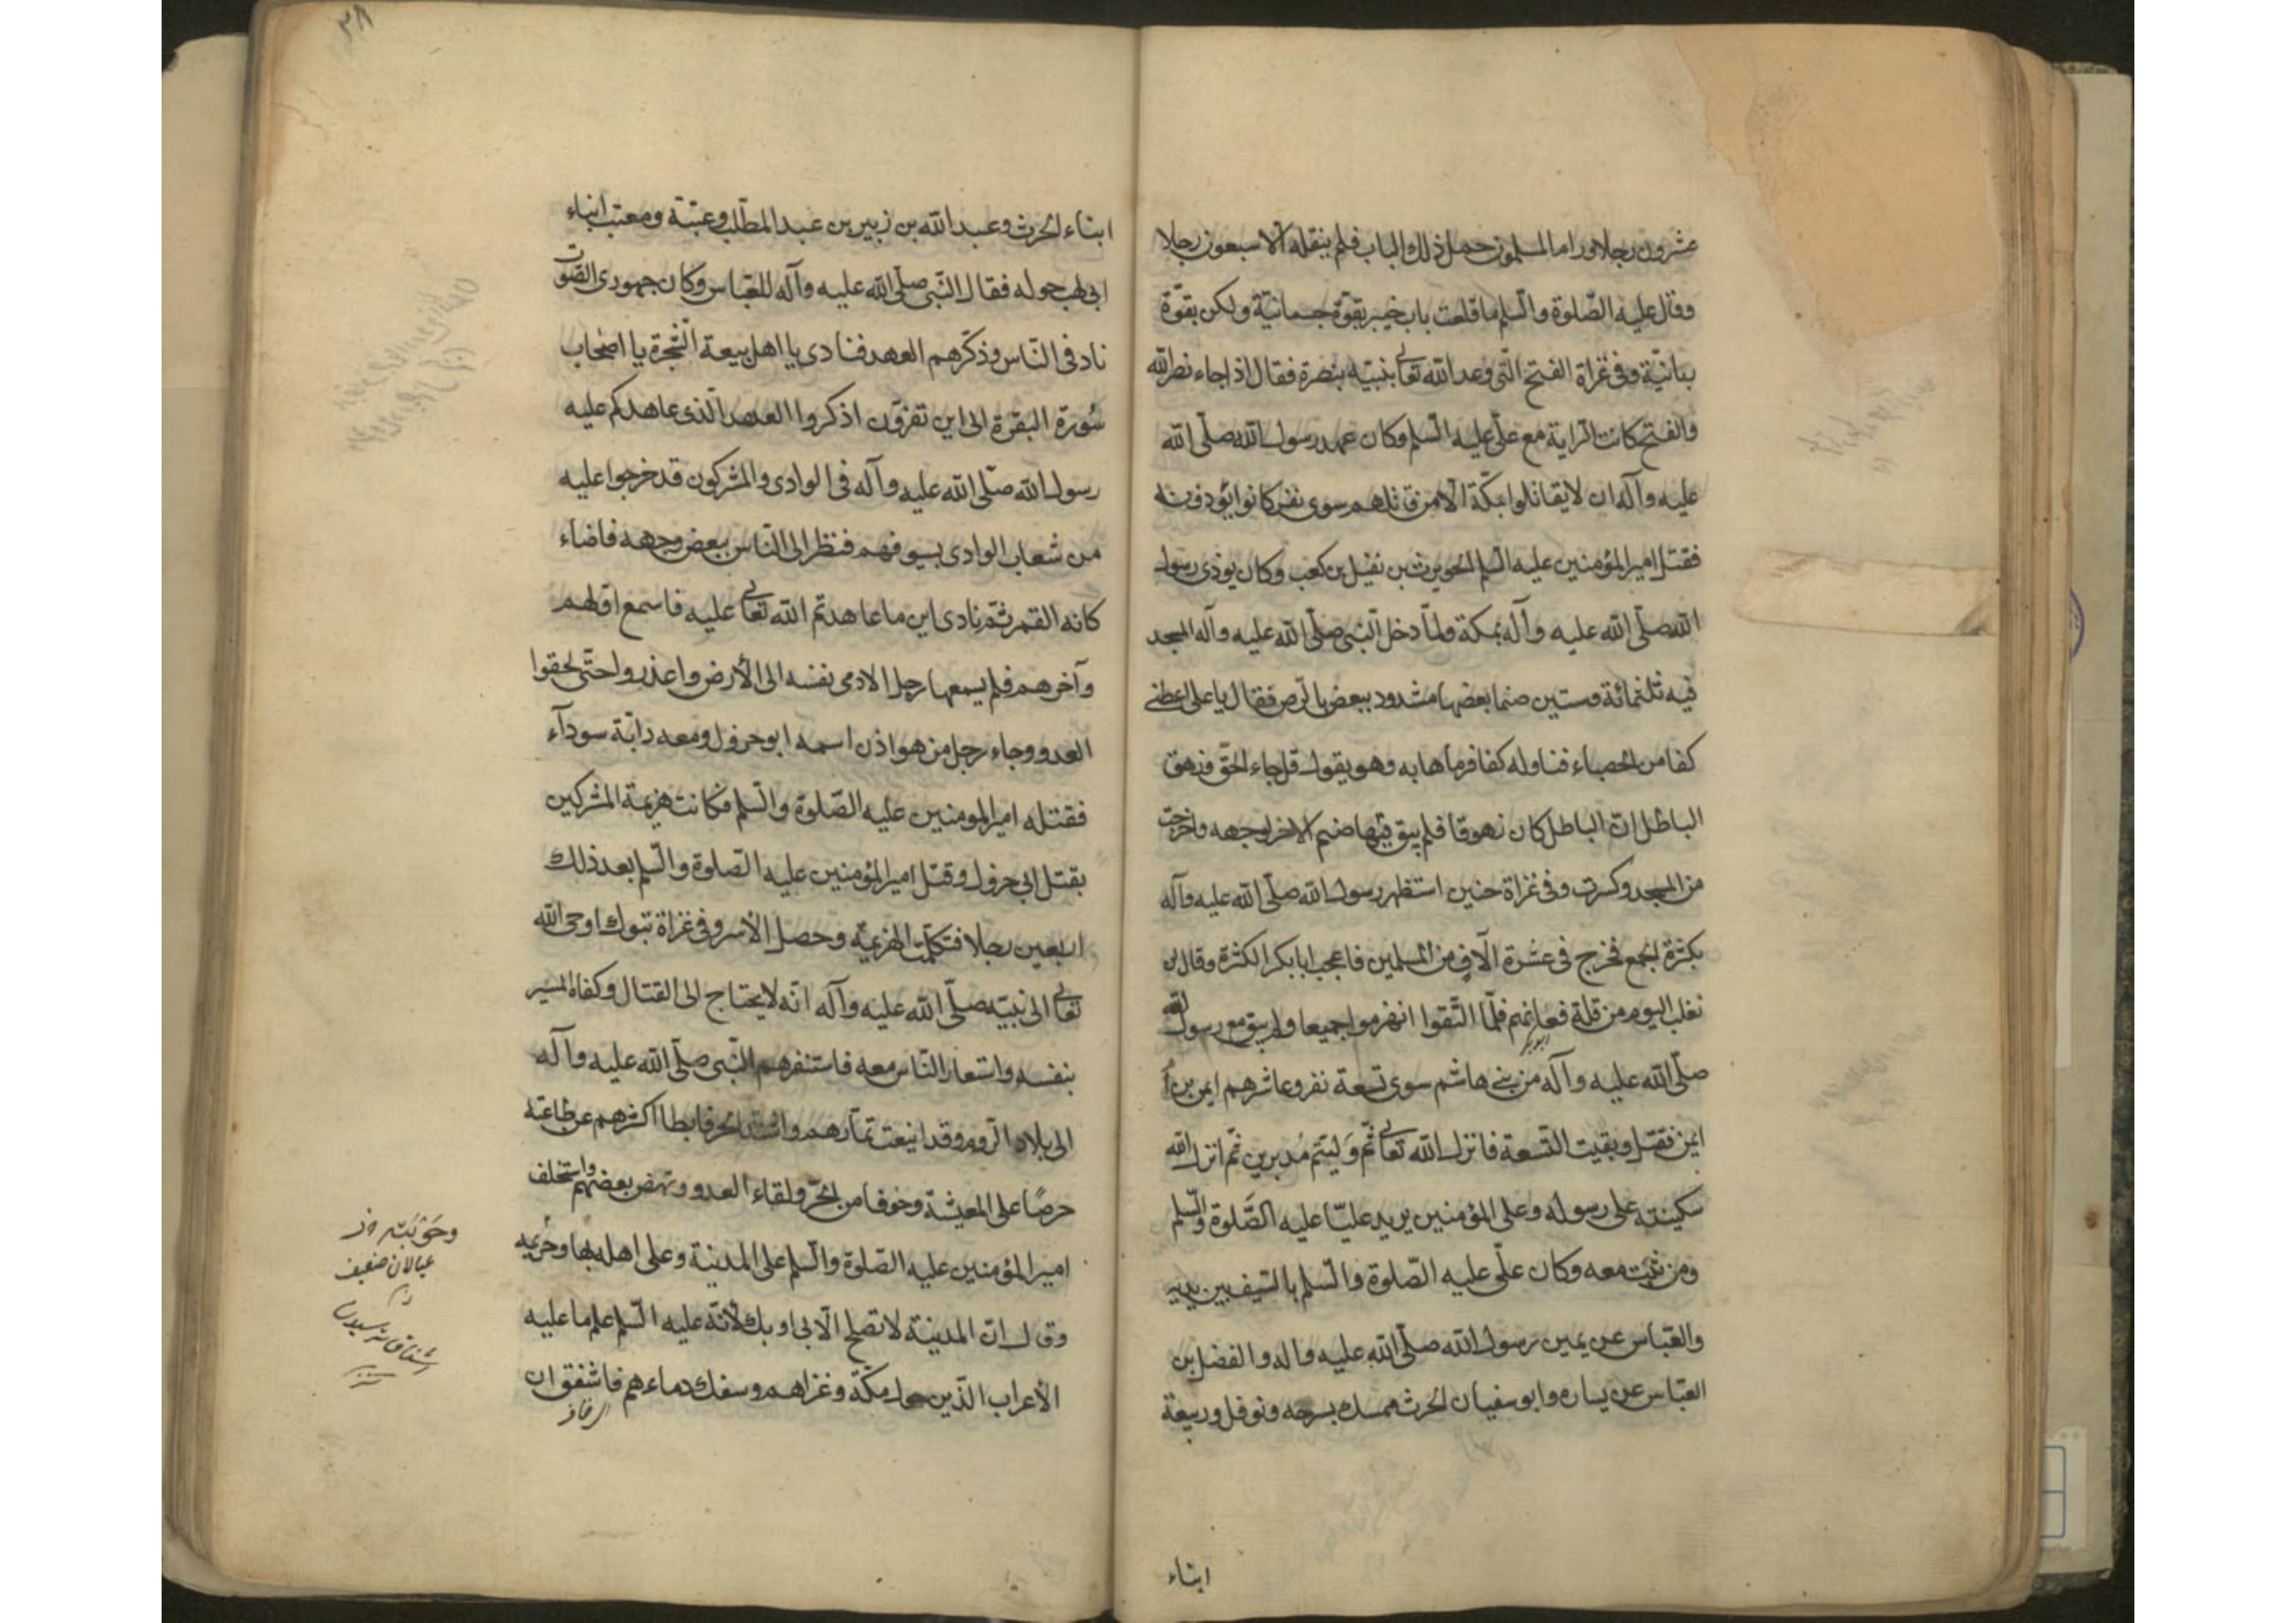 عشرون رجلا ورام المسلمون حمل ذلك الباب فلم ينقله الا سبعون رجلا
وقال عليه الصّلوة والسّلم ما قلعت باب خيبر بقوّة جسمانيّة ولكن بقوّة
ربانيّة وفى غزاة الفتح الّتى وعد الله تعالى نبيّه بنصره فقال اذا جاء نصر الله
والفتح كانت الراية مع علىّ عليه السّلم وكان عهد رسول الله صلّى الله
عليه وآله ان لا يقاتلوا بمكّة الا من قاتلهم سوى نفر كانوا يؤذونه
فقتل امير المؤمنين عليه السلم الحويرث بن نفيل بن كعب وكان يوذى رسول
الله صلّى الله عليه وآله بمكة ولمّا دخل النّبى صلّى الله عليه وآله المسجد
فيه ثلثمائة وستين صنما بعضها مشدود ببعض بالرّص فقال يا على اعطنى
كفا من الحصباء فناوله كفا فرماها به وهو يقول قل جاء الحقّ وزهق
الباطل انّ الباطل كان زهوقا فلم يبق فيها صنم الا خر لوجهه واخرجت
من المسجد وكسرت وفى غزاة حنين استظهر رسول الله صلّى الله عليه وآله
بكثرة الجمع فخرج فى عشرة آلاف من المسلمين فاعجب ابا بكر الكثرة وقال لن
نغلب اليوم من قلة فعانهم فلمّا التّقوا انهزموا جميعا ولم يبق مع رسول الله
ابو بكر
صلّى الله عليه وآله من بنى هاشم سوى تسعة نفر وعاشرهم ايمن بن أم
ايمن فقتل وبقيت التّسعة فانزل الله تعالى ثمّ وَلّيتم مُدبرين ثمّ انزل الله
سكينته على رسوله وعلى المؤمنين يريد عليّا عليه الصّلوة والسّلم
ومن ثبت معه وكان علىّ عليه الصّلوة والسّلم بالسّيف بين يديه
والعبّاس عن يمين رسول الله صلّى الله عليه وآله والفضل بن
العبّاس عن يساره وابو سفيان الحرث ممسك بسرجه ونوفل وربيعة
ابناء
ابناء الحرث وعبد الله بن زبير بن عبد المطّلب وعتبة ومعتب ابناء
ابى لهب حوله فقال النّبى صلّى الله عليه وآله للعبّاس وكان جمهورى الصّوت
ناد فى النّاس وذكّرهم العهد فنادى يا اهل بيعة الشّجرة يا اصحاب
سُورة البقرة الى اين تفرّون اذكروا العهد الّذى عاهدكم عليه
رسول الله صلّى الله عليه وآله فى الوادى والمشركون قد خرجوا عليه
من شعاب الوادى بسيوفهم فنظر الى النّاس ببعض وجهه فاضاء
كانه القمر ثمّ نادى اين ما عاهدتم الله تعالى عليه فاسمع اوّلهم
وآخرهم فلم يسمعها رجل الا رمى نفسه الى الأرض واعذروا حتّى لحقوا
العدو وجاء رجل من هواذن اسمه ابو جرول ومعه راية سودآء
فقتله امير المومنين عليه الصّلوة والسّلم فكانت هزيمة المشركين
بقتل ابى جرول وقتل امير المؤمنين عليه الصّلوة والسّلم بعد ذلك
اربعين رجلا فتكمّلت الهزيمة وحصل الأسر وفى غزاة تبوك اوحى الله
تعالى الى نبيّه صلّى الله عليه وآله انّه لا يحتاج الى القتال وكفاه المسير
بنفسه واستعار النّاس معه فاستنفرهم النّبى صلّى الله عليه وآله
الى بلاد الرّوم وقد اينعت ثمارهم واشتد الحر فابطا اكثرهم عن طاعته
حرصًا على المعيشة وخوفا من الحرّ ولقاء العدو ونهض بعضهم واستخلف
امير المؤمنين عليه الصّلوة والسّلم على المدينة وعلى اهله بها وحريمه
وقال انّ المدينة لا تصلح الا بى او بك لأنّه عليه السّلم علم ما عليه
الأعراب الّذين حول مكّة وغزاهم وسفك دماءهم فاشفق ان